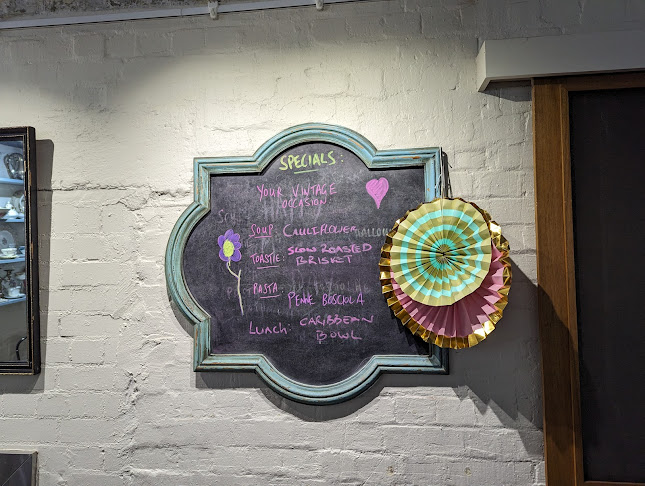 SPECIALS:
YOUR VINTAGE
OCCASION
SOUP CAULIFLOWER
TOASTIE: SLOW ROASTED
BRISKET
PASTA:
PENNE BOSCIOLA
LUNCH: CARIBBEAN
BOWL